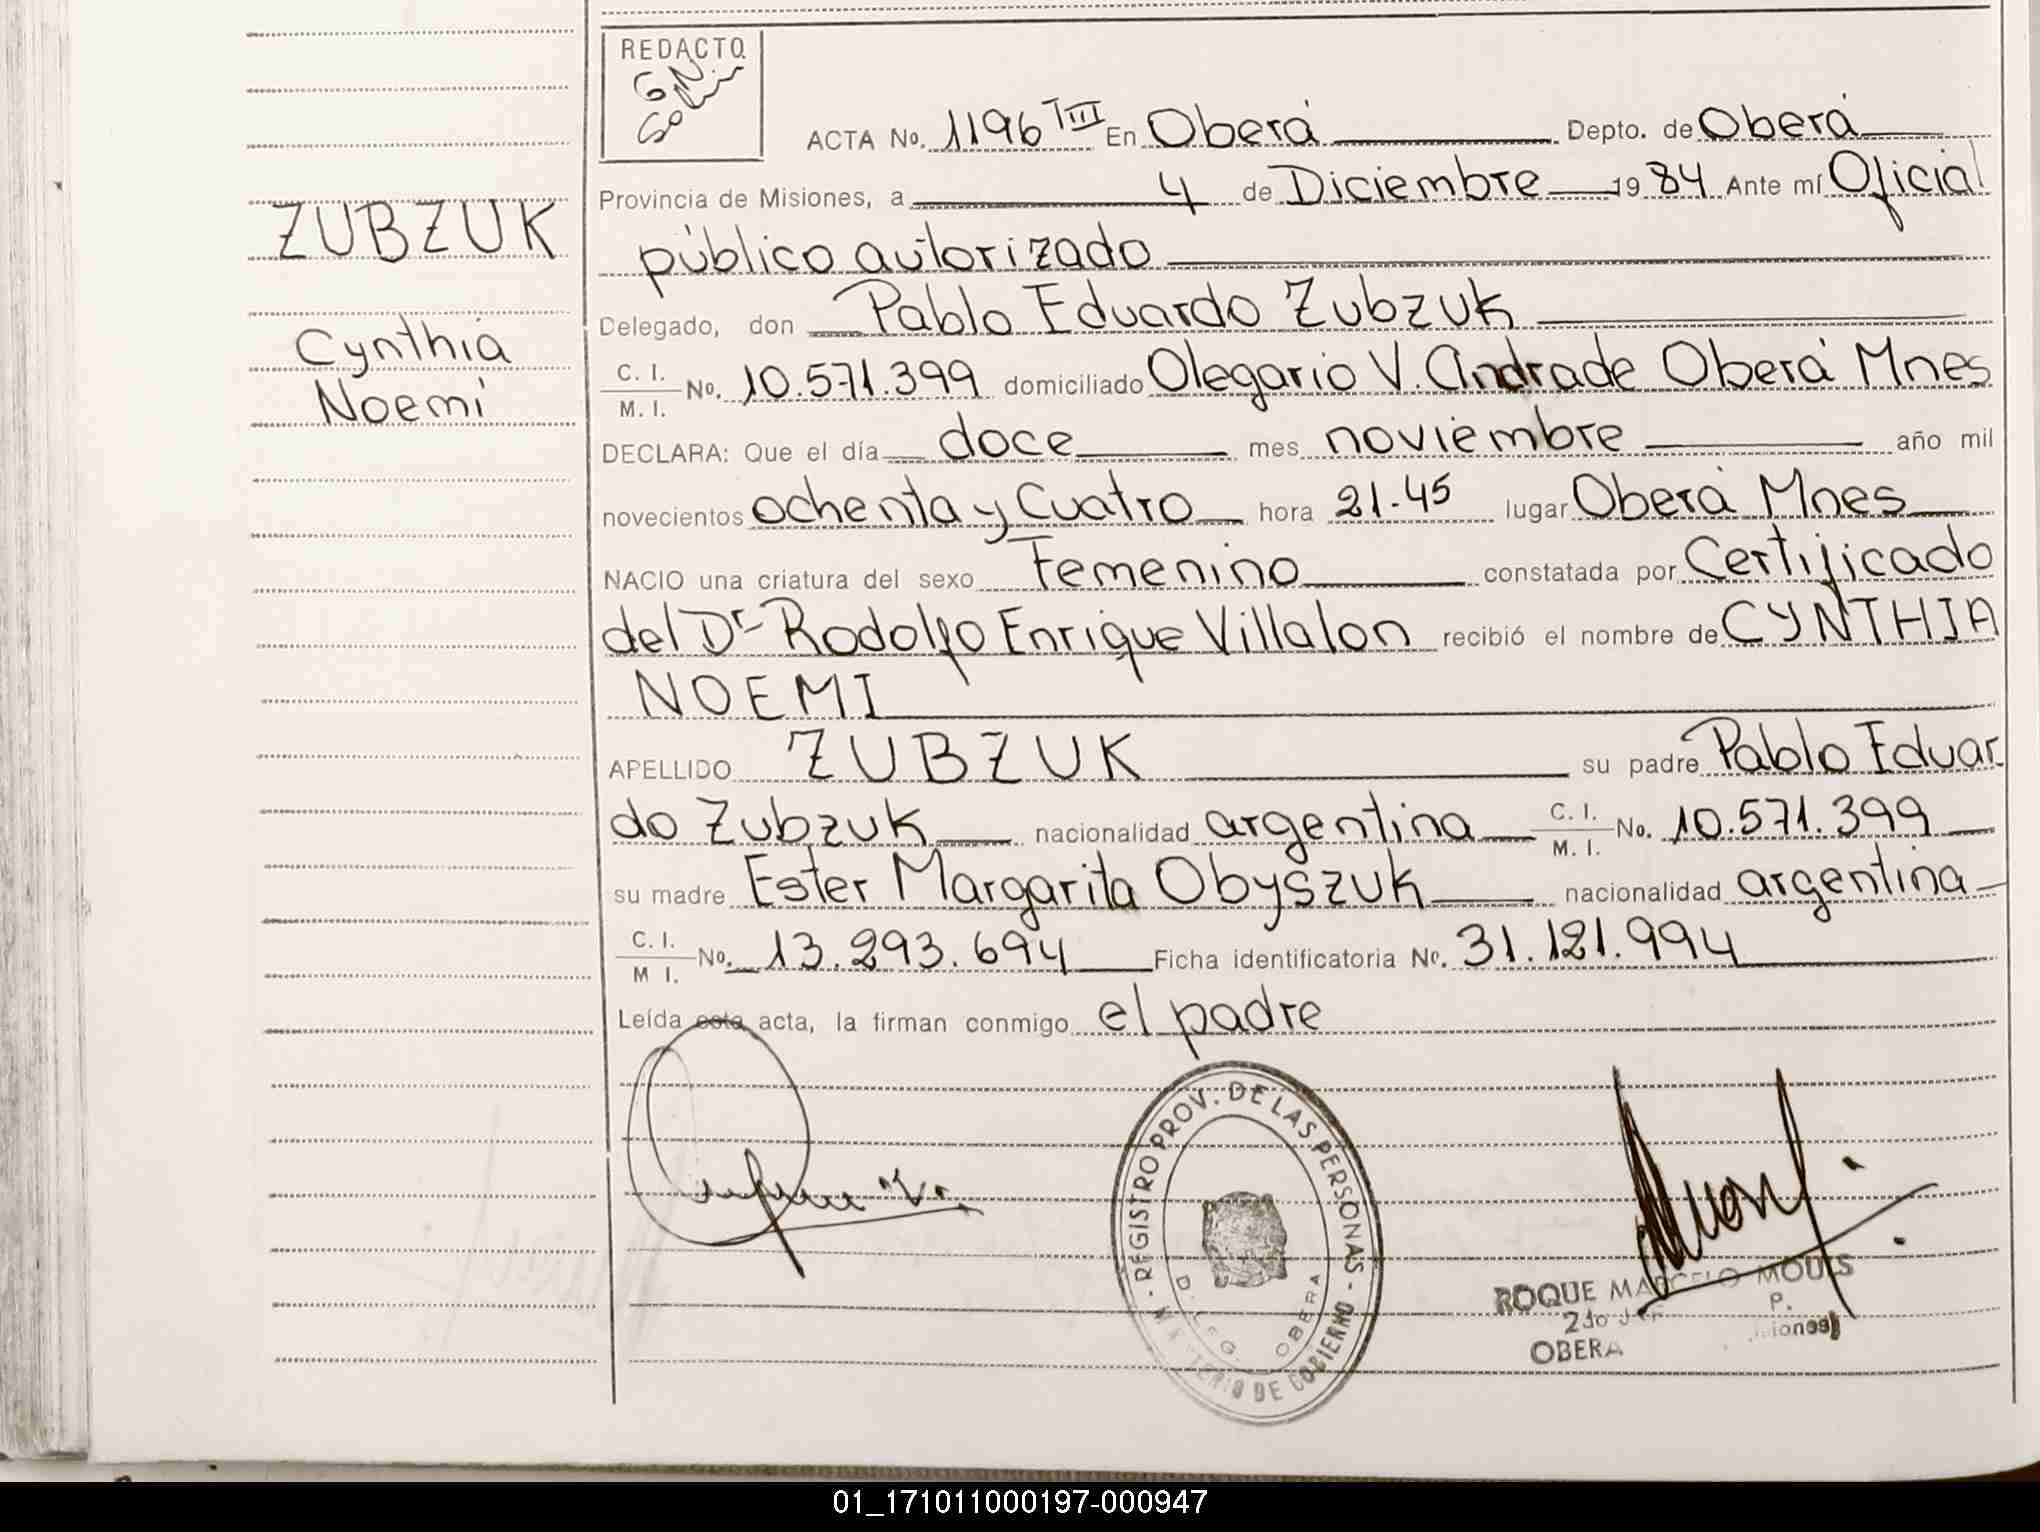 REDACTO
ACTA No. 1196 TIII En Oberá Depto. de Oberá
ZUBZUK
Cynthia
Noemi
Provincia de Misiones, a 4 de Diciembre 1984 Ante mí Oficial
público autorizado
Delegado, don Pablo Eduardo Zubzuk
C. I. M. I. No. 10.571.399 domiciliado Olegario V. Andrade Oberá Mnes
DECLARA: Que el día doce mes noviembre año mil
novecientos ochenta y Cuatro hora 21.45 lugar Oberá Mnes
NACIO una criatura del sexo Femenino constatada por Certificado
del Dr. Rodolfo Enrique Villalon recibió el nombre de CYNTHIA
NOEMI
APELLIDO ZUBZUK su padre Pablo Eduar
do Zubzuk nacionalidad argentina C. I. M. I. No. 10.571.399
su madre Ester Margarita Obyszuk nacionalidad argentina
C. I. M I. No. 13.293.694 Ficha identificatoria No. 31.121.994
Leída esta acta, la firman conmigo el padre
REGISTRO PROV. DE LAS PERSONAS
OBERA
DE GOBIERNO
ROQUE MARCELO MOUIS
2do
P.
OBERA
01_171011000197-000947